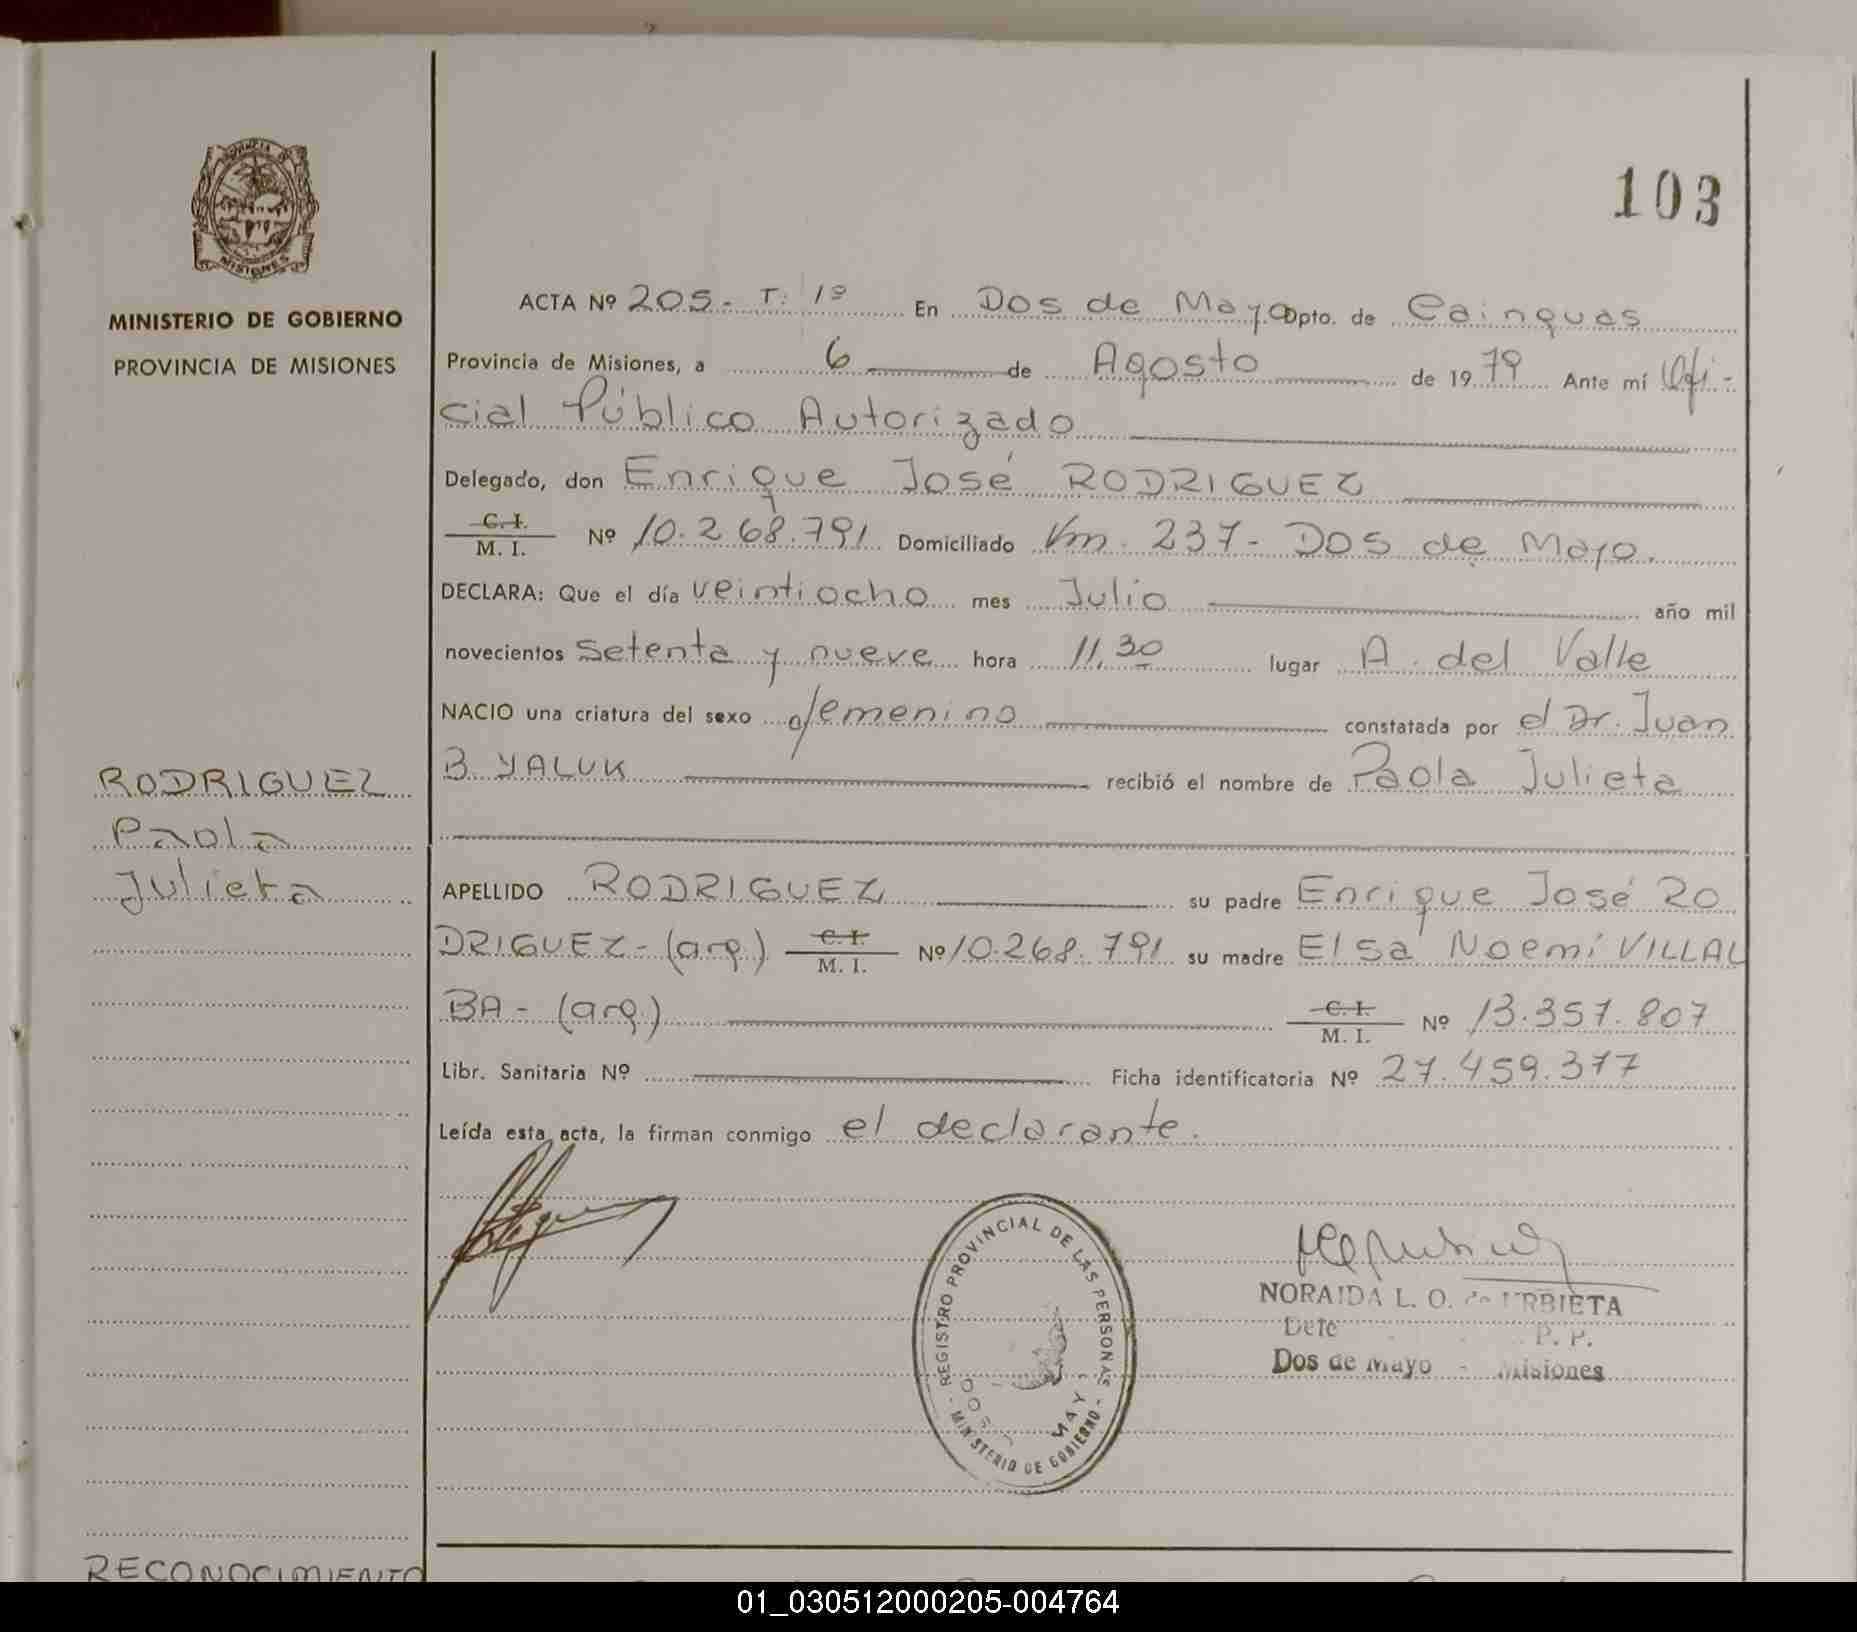 103
MINISTERIO DE GOBIERNO
PROVINCIA DE MISIONES
ACTA Nº 205- T: 1º En Dos de Mayo Dpto. de Cainguas
Provincia de Misiones, a 6 de Agosto de 1979 Ante mí Ofi-
cial Público Autorizado
Delegado, don Enrique José RODRIGUEZ
C. I.
M. I. Nº 10.268.791 Domiciliado Km. 237- Dos de Mayo.
DECLARA: Que el día veintiocho mes Julio año mil
novecientos setenta y nueve hora 11,30 lugar A. del Valle
NACIO una criatura del sexo femenino constatada por el Dr. Juan
B YALUK recibió el nombre de Paola Julieta
RODRIGUEZ
Paola
Julieta
APELLIDO RODRIGUEZ su padre Enrique José RO
DRIGUEZ- (arg.) C. I. M. I. Nº 10.268.791 su madre Elsa Noemí VILLAL
BA- (arg.) C. I. M. I. Nº 13.357.807
Libr. Sanitaria Nº Ficha identificatoria Nº 27.459.377
Leída esta acta, la firman conmigo el declarante.
REGISTRO PROVINCIAL DE LAS PERSONAS
- MINISTERIO DE GOBIERNO -
NORAIDA L. O. de URBIETA
P. P.
Dos de Mayo - Misiones
RECONOCIMIENTO
01_030512000205-004764